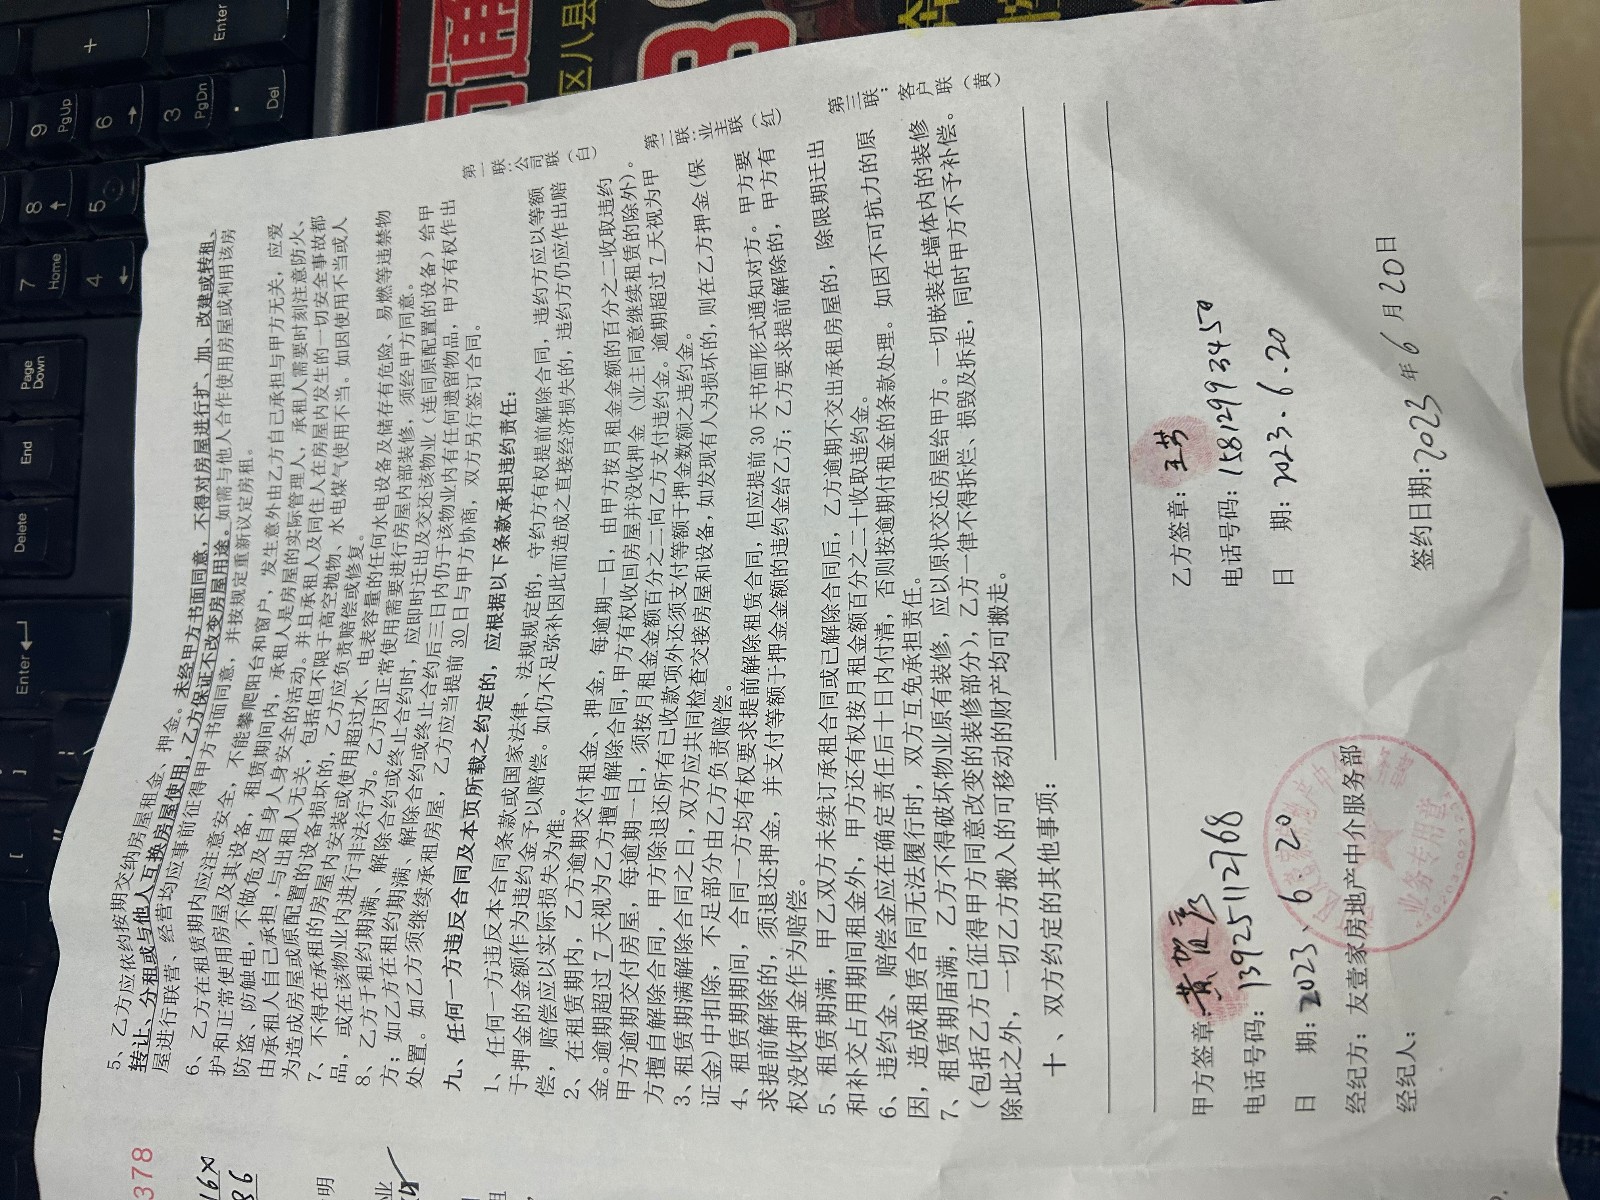 5、乙方应依约按期交纳房屋租金、押金。未经甲方书面同意，不得对房屋进行扩、加、改建或转租、
转让、分租或与他人互换房屋使用，乙方保证不改变房屋用途。如需与他人合作使用房屋或利用该房
屋进行联营、经营均应事前征得甲方书面同意，并按规定重新议定房租。
6、乙方在租赁期内应注意安全，不能攀爬阳台和窗户，发生意外由乙方自己承担与甲方无关，应爱
护和正常使用房屋及其设备，租赁期间内，承租人是房屋的实际管理人，承租人需要时刻注意防火、
防盗、防触电，不做危及自身人身安全的活动。并且承租人及同住人在房屋内发生的一切安全事故都
由承租人自己承担，与出租人无关，包括但不限于高空抛物、水电煤气使用不当。如因使用不当或人
为造成房屋或原配置的设备损坏的，乙方应负责赔偿或修复。
7、不得在承租的房屋内安装或使用超过水、电表容量的任何水电设备及储存有危险、易燃等违禁物
品，或在该物业内进行非法行为。乙方因正常使用需要进行房屋内部装修，须经甲方同意。
8、乙方于租约期满、解除合约或终止合约时，应即时迁出及交还该物业（连同原配置的设备）给甲
方；如乙方在租约期满、解除合约或终止合约后三日内仍于该物业内有任何遗留物品，甲方有权作出
处置。如乙方须继续承租房屋，乙方应当提前 30 日与甲方协商，双方另行签订合同。
九、任何一方违反合同及本页所载之约定的，应根据以下条款承担违约责任：
1、任何一方违反本合同条款或国家法律、法规规定的，守约方有权提前解除合同，违约方应以等额
于押金的金额作为违约金予以赔偿。如仍不足弥补因此而造成之直接经济损失的，违约方仍应作出赔
偿，赔偿应以实际损失为准。
2、在租赁期内，乙方逾期交付租金、押金，每逾期一日，由甲方按月租金金额的百分之二收取违约
金。逾期超过 7 天视为乙方擅自解除合同，甲方有权收回房屋并没收押金（业主同意继续租赁的除外）。
甲方逾期交付房屋，每逾期一日，须按月租金金额百分之二向乙方支付违约金。逾期超过 7 天视为甲
方擅自解除合同，甲方除退还所有已收款项外还须支付等额于押金数额之违约金。
3、租赁期满解除合同之日，双方应共同检查交接房屋和设备，如发现有人为损坏的，则在乙方押金（保
证金）中扣除，不足部分由乙方负责赔偿。
4、租赁期期间，合同一方均有权要求提前解除租赁合同，但应提前 30 天书面形式通知对方。甲方要
求提前解除的，须退还押金，并支付等额于押金金额的违约金给乙方；乙方要求提前解除的，甲方有
权没收押金作为赔偿。
5、租赁期满，甲乙双方未续订承租合同或已解除合同后，乙方逾期不交出承租房屋的，除限期迁出
和补交占用期间租金外，甲方还有权按月租金额百分之二十收取违约金。
6、违约金、赔偿金应在确定责任后十日内付清，否则按逾期付租金的条款处理。如因不可抗力的原
因，造成租赁合同无法履行时，双方互免承担责任。
7、租赁期届满，乙方不得破坏物业原有装修，应以原状交还房屋给甲方。一切嵌装在墙体内的装修
（包括乙方已征得甲方同意改变的装修部分），乙方一律不得拆烂、损毁及拆走，同时甲方不予补偿。
除此之外，一切乙方搬入的可移动的财产均可搬走。
十、双方约定的其他事项：
甲方签章：黄贺彦
电话号码：13925112168
日 期：2023.6.20
经纪方：友壹家房地产中介服务部
经纪人：
乙方签章：王芳
电话号码：15812993450
日 期：2023.6.20
签约日期：2023年6月20日
第一联：公司联（白）
第二联：业主联（红）
第三联：客户联（黄）
业务专用章
378
16
36
明
业
通
区八县
+
Enter
9
PgUp
6
3
PgDn
.
Del
8
5
7
Home
4
Page
Down
End
Delete
Enter
]
[